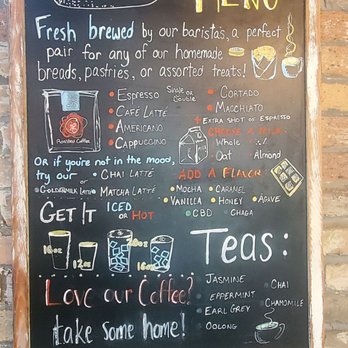 MENU
Fresh brewed by our baristas, a perfect
pair for any of our homemade
breads, pastries, or assorted treats!
Roasted Coffee
Espresso Single or Double
Café Latté
Americano
Cappuccino
Cortado
Macchiato
+ Extra Shot of Espresso
Choose a Milk
Whole 2%
Oat Almond
Or if you're not in the mood,
try our
Chai Latté
Goldenmilk Latté
Matcha Latté
Add a Flavor
Mocha Caramel
Vanilla Honey Agave
CBD Chaga
Get It Iced or Hot
16oz
12oz
20oz
16oz
Teas:
Jasmine
Peppermint
Earl Grey
Oolong
Chai
Chamomile
Love our Coffee?
take some home!